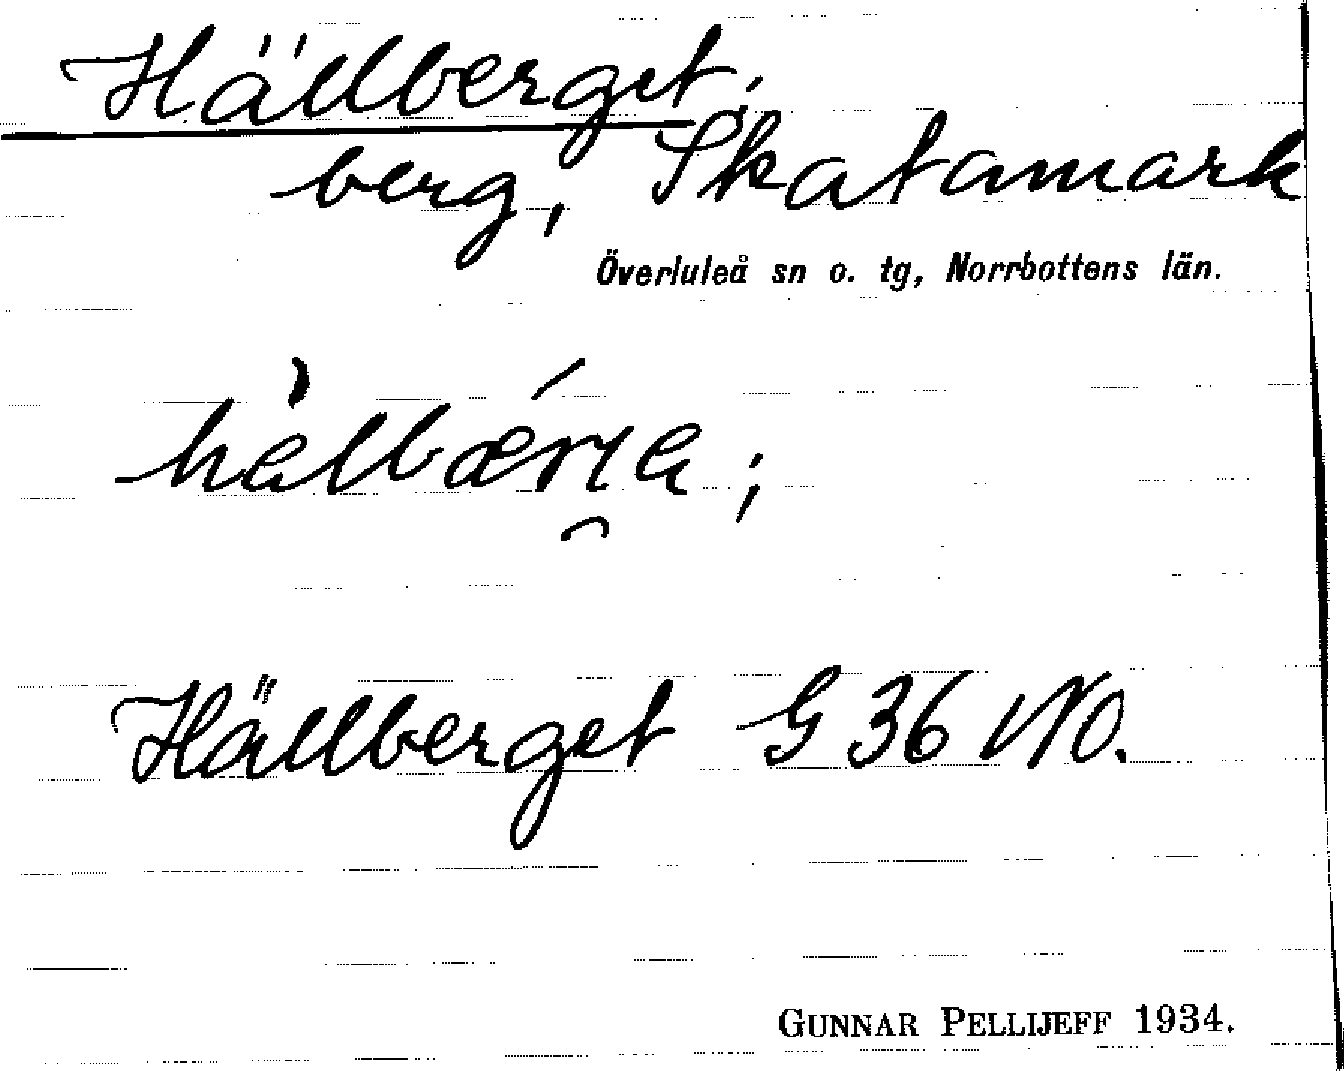 Hällberget,
berg, Skatamark
Överluleå sn o. tg, Norrbottens län.
Hällberget G 36 NO.
GUNNAR PELLIJEFF 1934.